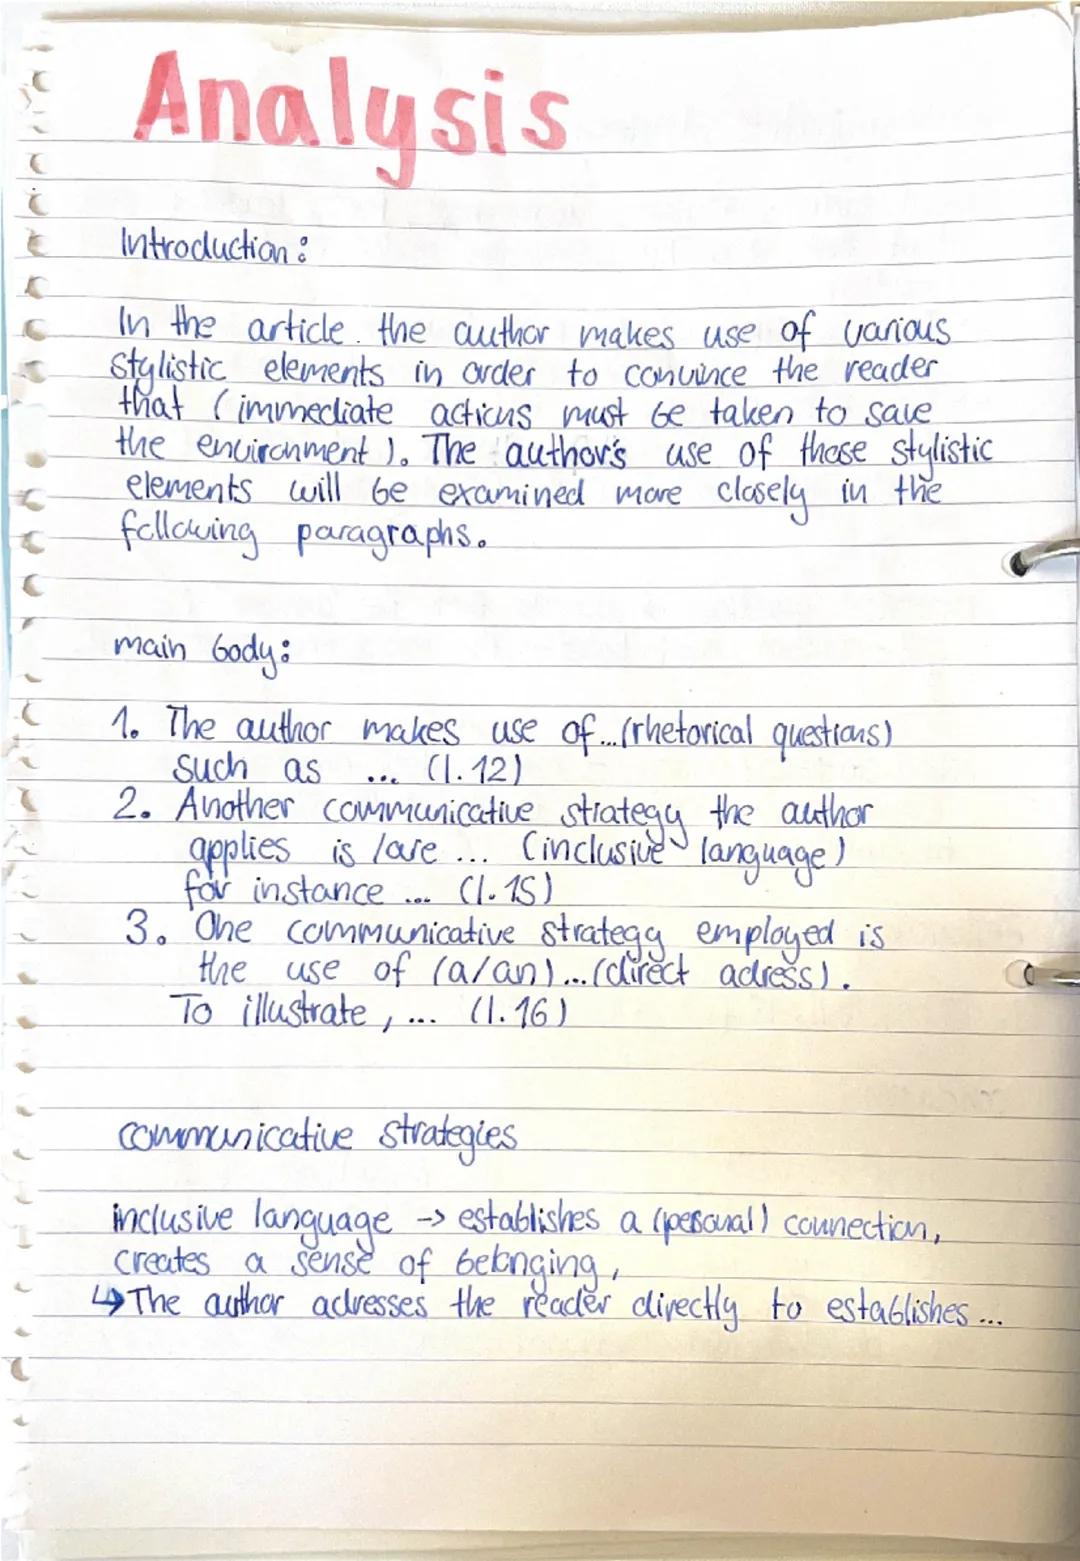 Analysis
Introduction:
In the article. the author makes use of various
stylistic elements in order to convince the reader
that (immediate actions must be taken to save
the environment). The author's use of those stylistic
elements will be examined more closely in the
following paragraphs.
main body:
1. The author makes use of...(rhetorical questions)
such as ... (l.12)
2. Another communicative strategy the author
applies is/are ... (inclusive language)
for instance ... (l.15)
3. One communicative strategy employed is
the use of (a/an)...(direct adress).
To illustrate, ... (l.16)
communicative strategies
inclusive language -> establishes a (pesonal) connection,
creates a sense of belonging,
↳The author adresses the reader directly to establishes...